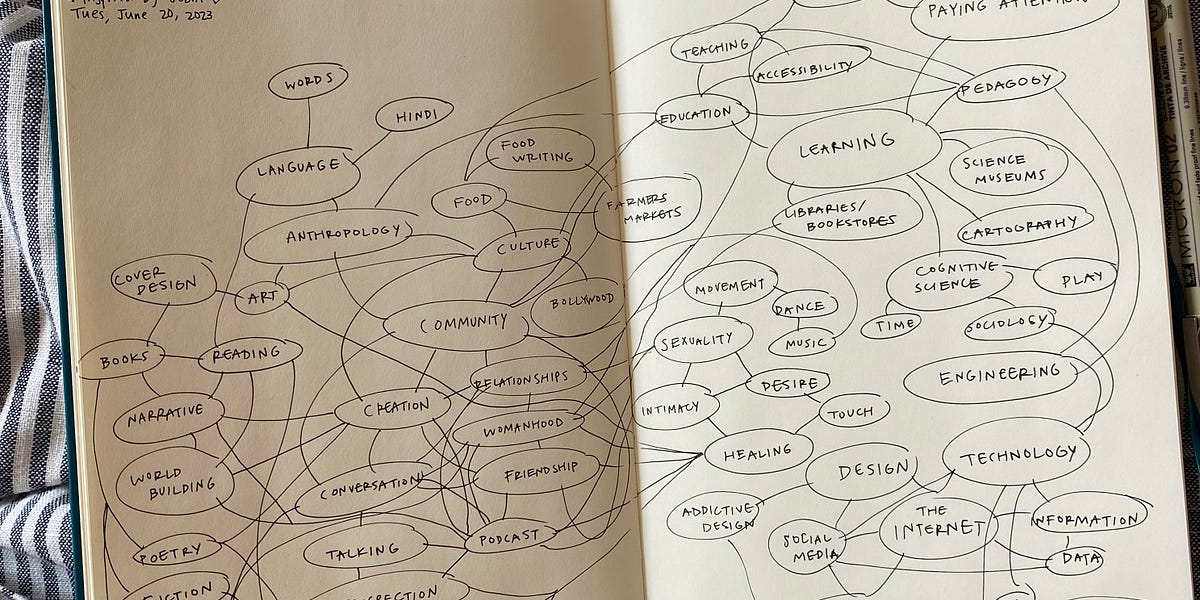 Tues, June 20, 2023
WORDS
HINDI
LANGUAGE
FOOD
WRITING
FOOD
FARMERS
MARKETS
ANTHROPOLOGY
CULTURE
COVER
DESIGN
ART
BOLLYWOOD
COMMUNITY
BOOKS
READING
RELATIONSHIPS
NARRATIVE
CREATION
WOMANHOOD
WORLD
BUILDING
CONVERSATION
FRIENDSHIP
POETRY
TALKING
PODCAST
FICTION
PAYING ATTENTION
TEACHING
ACCESSIBILITY
PEDAGOGY
EDUCATION
LEARNING
SCIENCE
MUSEUMS
LIBRARIES/
BOOKSTORES
CARTOGRAPHY
MOVEMENT
COGNITIVE
SCIENCE
PLAY
DANCE
TIME
SOCIOLOGY
SEXUALITY
MUSIC
DESIRE
ENGINEERING
INTIMACY
TOUCH
HEALING
DESIGN
TECHNOLOGY
ADDICTIVE
DESIGN
THE
INTERNET
INFORMATION
SOCIAL
MEDIA
DATA
MICRON 02